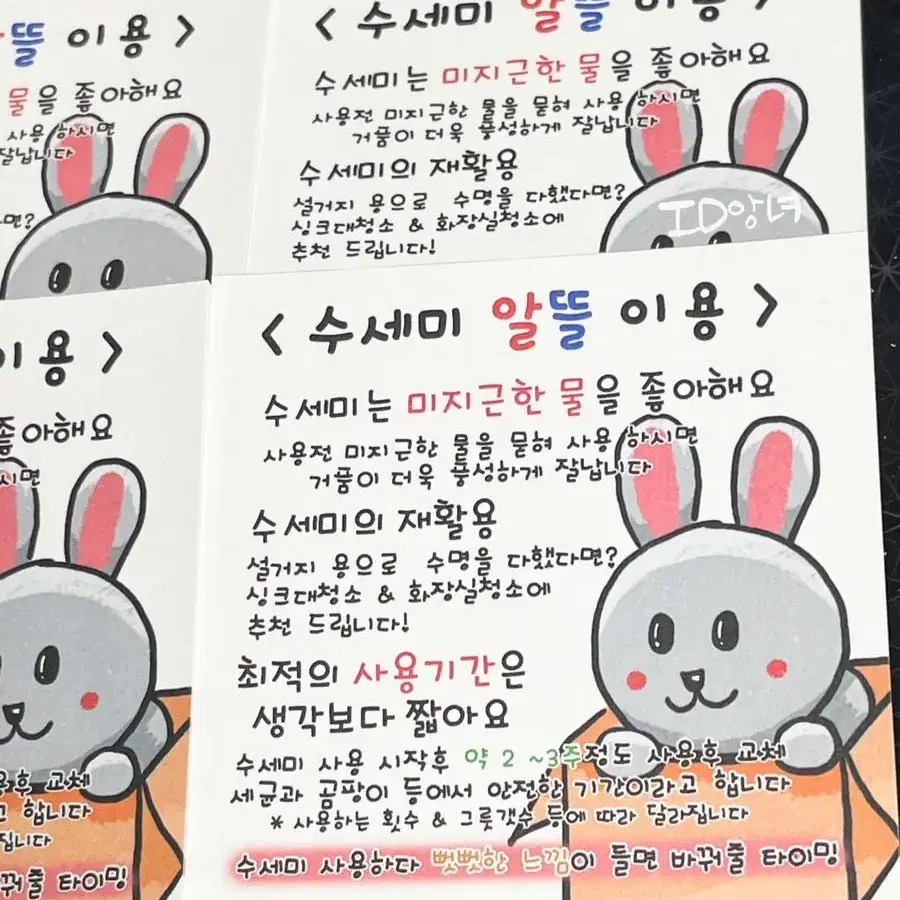 뜰 이용 >
물을 좋아해요
사용 하시면
잘납니다
면?
< 수세미 알뜰 이용 >
수세미는 미지근한 물을 좋아해요
사용전 미지근한 물을 묻혀 사용 하시면
거품이 더욱 풍성하게 잘납니다
수세미의 재활용
설거지 용으로 수명을 다했다면?
싱크대청소 & 화장실청소에
추천 드립니다!
ID앙녀
이용 >
좋아해요
시면
사용후 교체
고 합니다
집니다
꿔줄 타이밍
< 수세미 알뜰 이용 >
수세미는 미지근한 물을 좋아해요
사용전 미지근한 물을 묻혀 사용 하시면
거품이 더욱 풍성하게 잘납니다
수세미의 재활용
설거지 용으로 수명을 다했다면?
싱크대청소 & 화장실청소에
추천 드립니다!
최적의 사용기간은
생각보다 짧아요
수세미 사용 시작후 약 2 ~3주정도 사용후 교체
세균과 곰팡이 등에서 안전한 기간이라고 합니다
* 사용하는 횟수 & 그릇갯수 등에 따라 달라집니다
수세미 사용하다 뻣뻣한 느낌이 들면 바꿔줄 타이밍